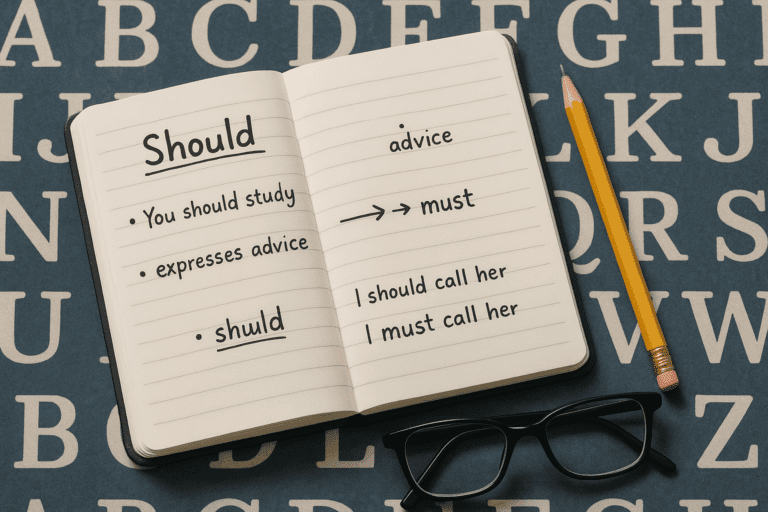 A B C D E F G H
I J K J
Should
• You should study
• expresses advice
• shuld
advice
→→ must
I should call her
I must call her
N Q R S
U V W
B Z